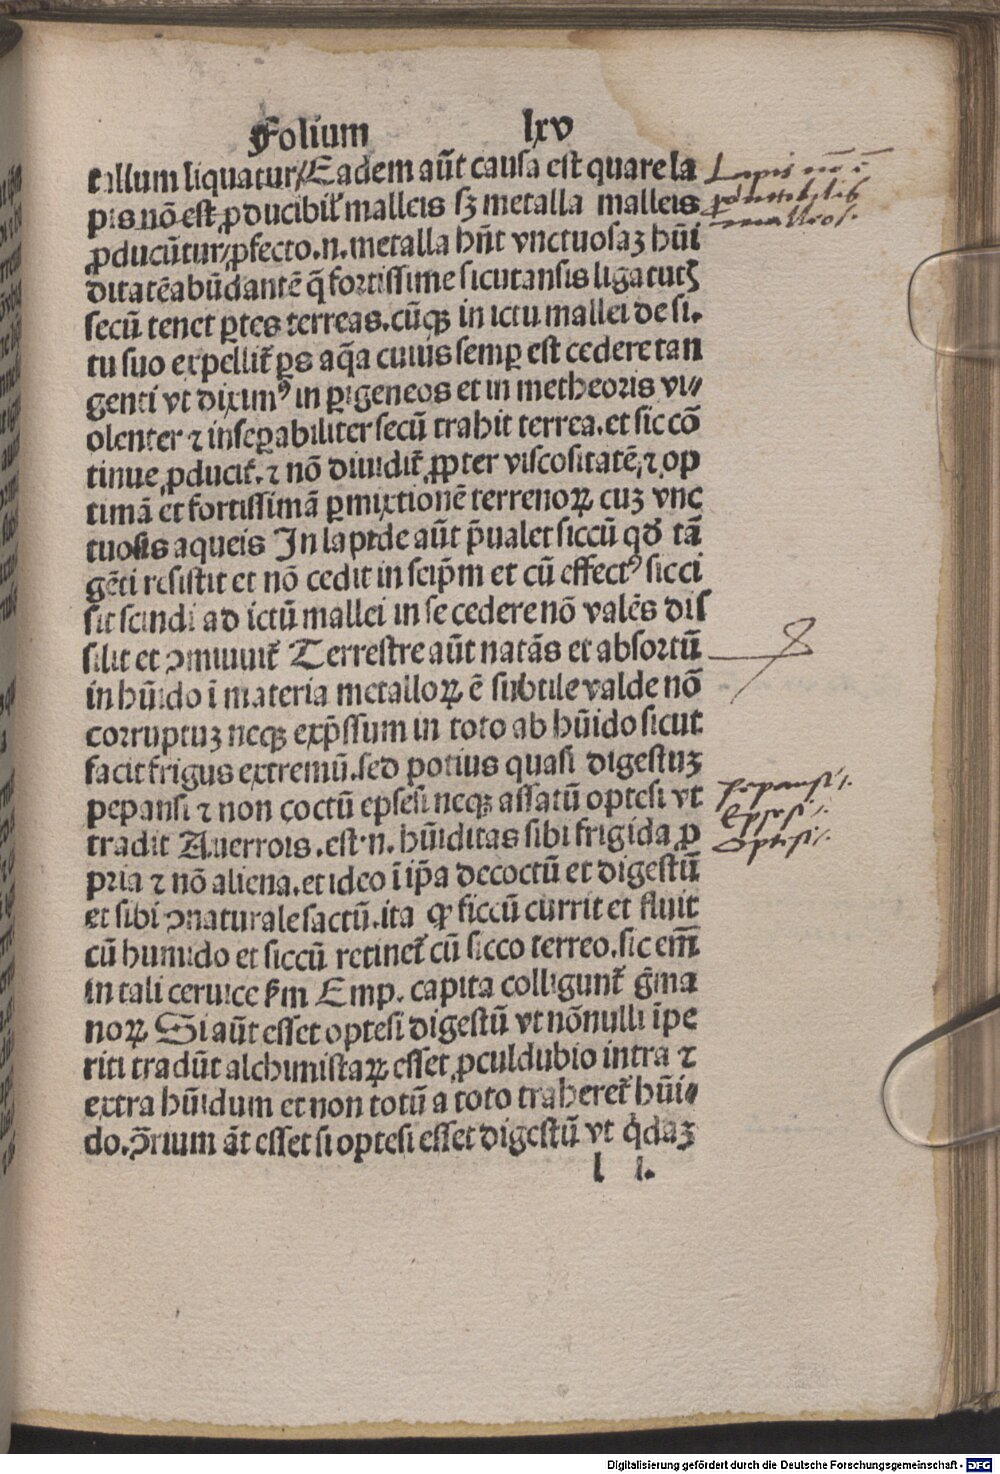 Folium lxv
tallum liquatur/Eadem aūt causa est quare la
pis nō est ꝓducibil' malleis sꝫ metalla malleis
ꝓducūtur/ꝓfecto.n.metalla hn̄t vnctuosaꝫ hūi
ditatē abūdantē q̄ fortissime sicut ansis ligatur̄
secū tenet ꝑtes terreas.cūqꝫ in ictu mallei de si-
tu suo expellit᷑ ꝑs aq̄a cuius semꝑ est cedere tan
genti vt diximꝰ in ꝑigeneos et in metheoris vi/
olenter ⁊ inseꝑabiliter secū trahit terrea.et sic cō
tinue ꝓducit᷑.⁊ nō diuidit᷑ ꝓpter viscositatē,⁊ op
timā et fortissimā ꝑmixtionē terrenoꝝ cuꝫ vnc
tuosis aqueis In lapide aūt p̄ualet siccū qđ tā
gēti resistit et nō cedit in seip̄m et cū effectꝰ sicci
sit scindi ad ictū mallei in se cedere nō valēs dis
silit et ꝯminuit᷑ Terrestre aūt natās et absortū
in hūido ī materia metalloꝝ ē subtile valde nō
corruptuꝫ neqꝫ exp̄ssum in toto ab hūido sicut
facit frigus extremū.sed potius quasi digestuꝫ
pepansi ⁊ non coctū epsesi neqꝫ assatū optesi vt
tradit Auerrois.est.n.hūiditas sibi frigida ꝓ
pria ⁊ nō aliena.et ideo ī ip̄a decoctū et digestū
et sibi ꝯnaturale factū.ita ꝙ siccū currit et fluit
cū humido et siccū retinet᷑ cū sicco terreo.sic em̄
in tali ceruice km Emp. capita colligunt᷑ ḡma
noꝝ Si aūt esset optesi digestū vt nōnulli īpe
riti tradūt alchimistaꝝ esset ꝓculdubio intra ⁊
extra hūidum et non totū a toto traheret᷑ hūi/
do.ꝯ̄rium āt esset si optesi esset digestū vt q̇daꝫ
l i.
Lapis nō ē
ꝓductibilis
malleo/.
pepansi/.
Epsesi/.
Optesi/.
Digitalisierung gefördert durch die Deutsche Forschungsgemeinschaft - DFG